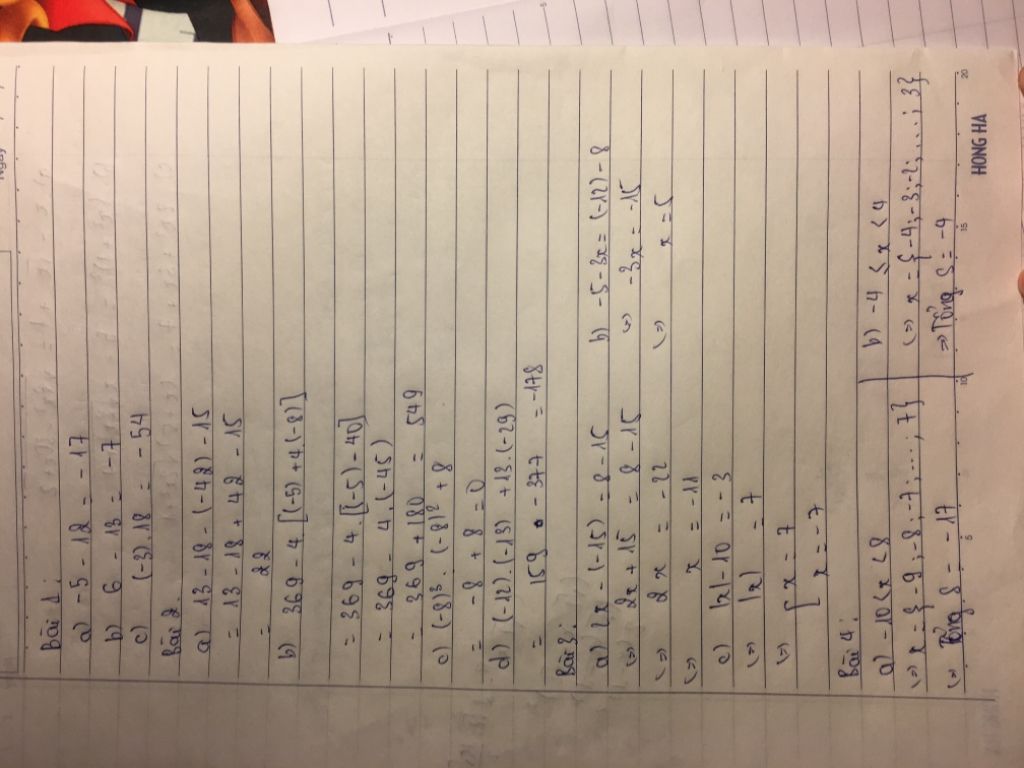 Bài 1:
a) -5 - 12 = -17
b) 6 - 13 = -7
c) (-3).18 = -54
Bài 2
a) 13 - 18 - (-42) - 15
= 13 - 18 + 42 - 15
= 22
b) 369 - 4.[(-5) + 4(-8)]
= 369 - 4.[(-5) - 40]
= 369 - 4.(-45)
= 369 + 180 = 549
c) (-8)³ : (-8)² + 8
= -8 + 8 = 0
d) (-12).(-13) + 13.(-29)
= 159 - 377 = -178
Bài 3:
a) 2x - (-15) = 8 - 15
(=) 2x + 15 = 8 - 15
(=) 2x = -22
(=) x = -11
b) -5 - 3x = (-12) - 8
(=) -3x = -15
(=) x = 5
c) |x| - 10 = -3
(=) |x| = 7
(=) [x = 7
[x = -7
Bài 4:
a) -10 < x < 8
(=) x = {-9; -8; -7; ...; 7}
(=) Tổng S = -17
b) -4 ≤ x < 4
(=) x = {-4; -3; -2; ...; 3}
=> Tổng S = -4
HONG HA
5
10
15
20